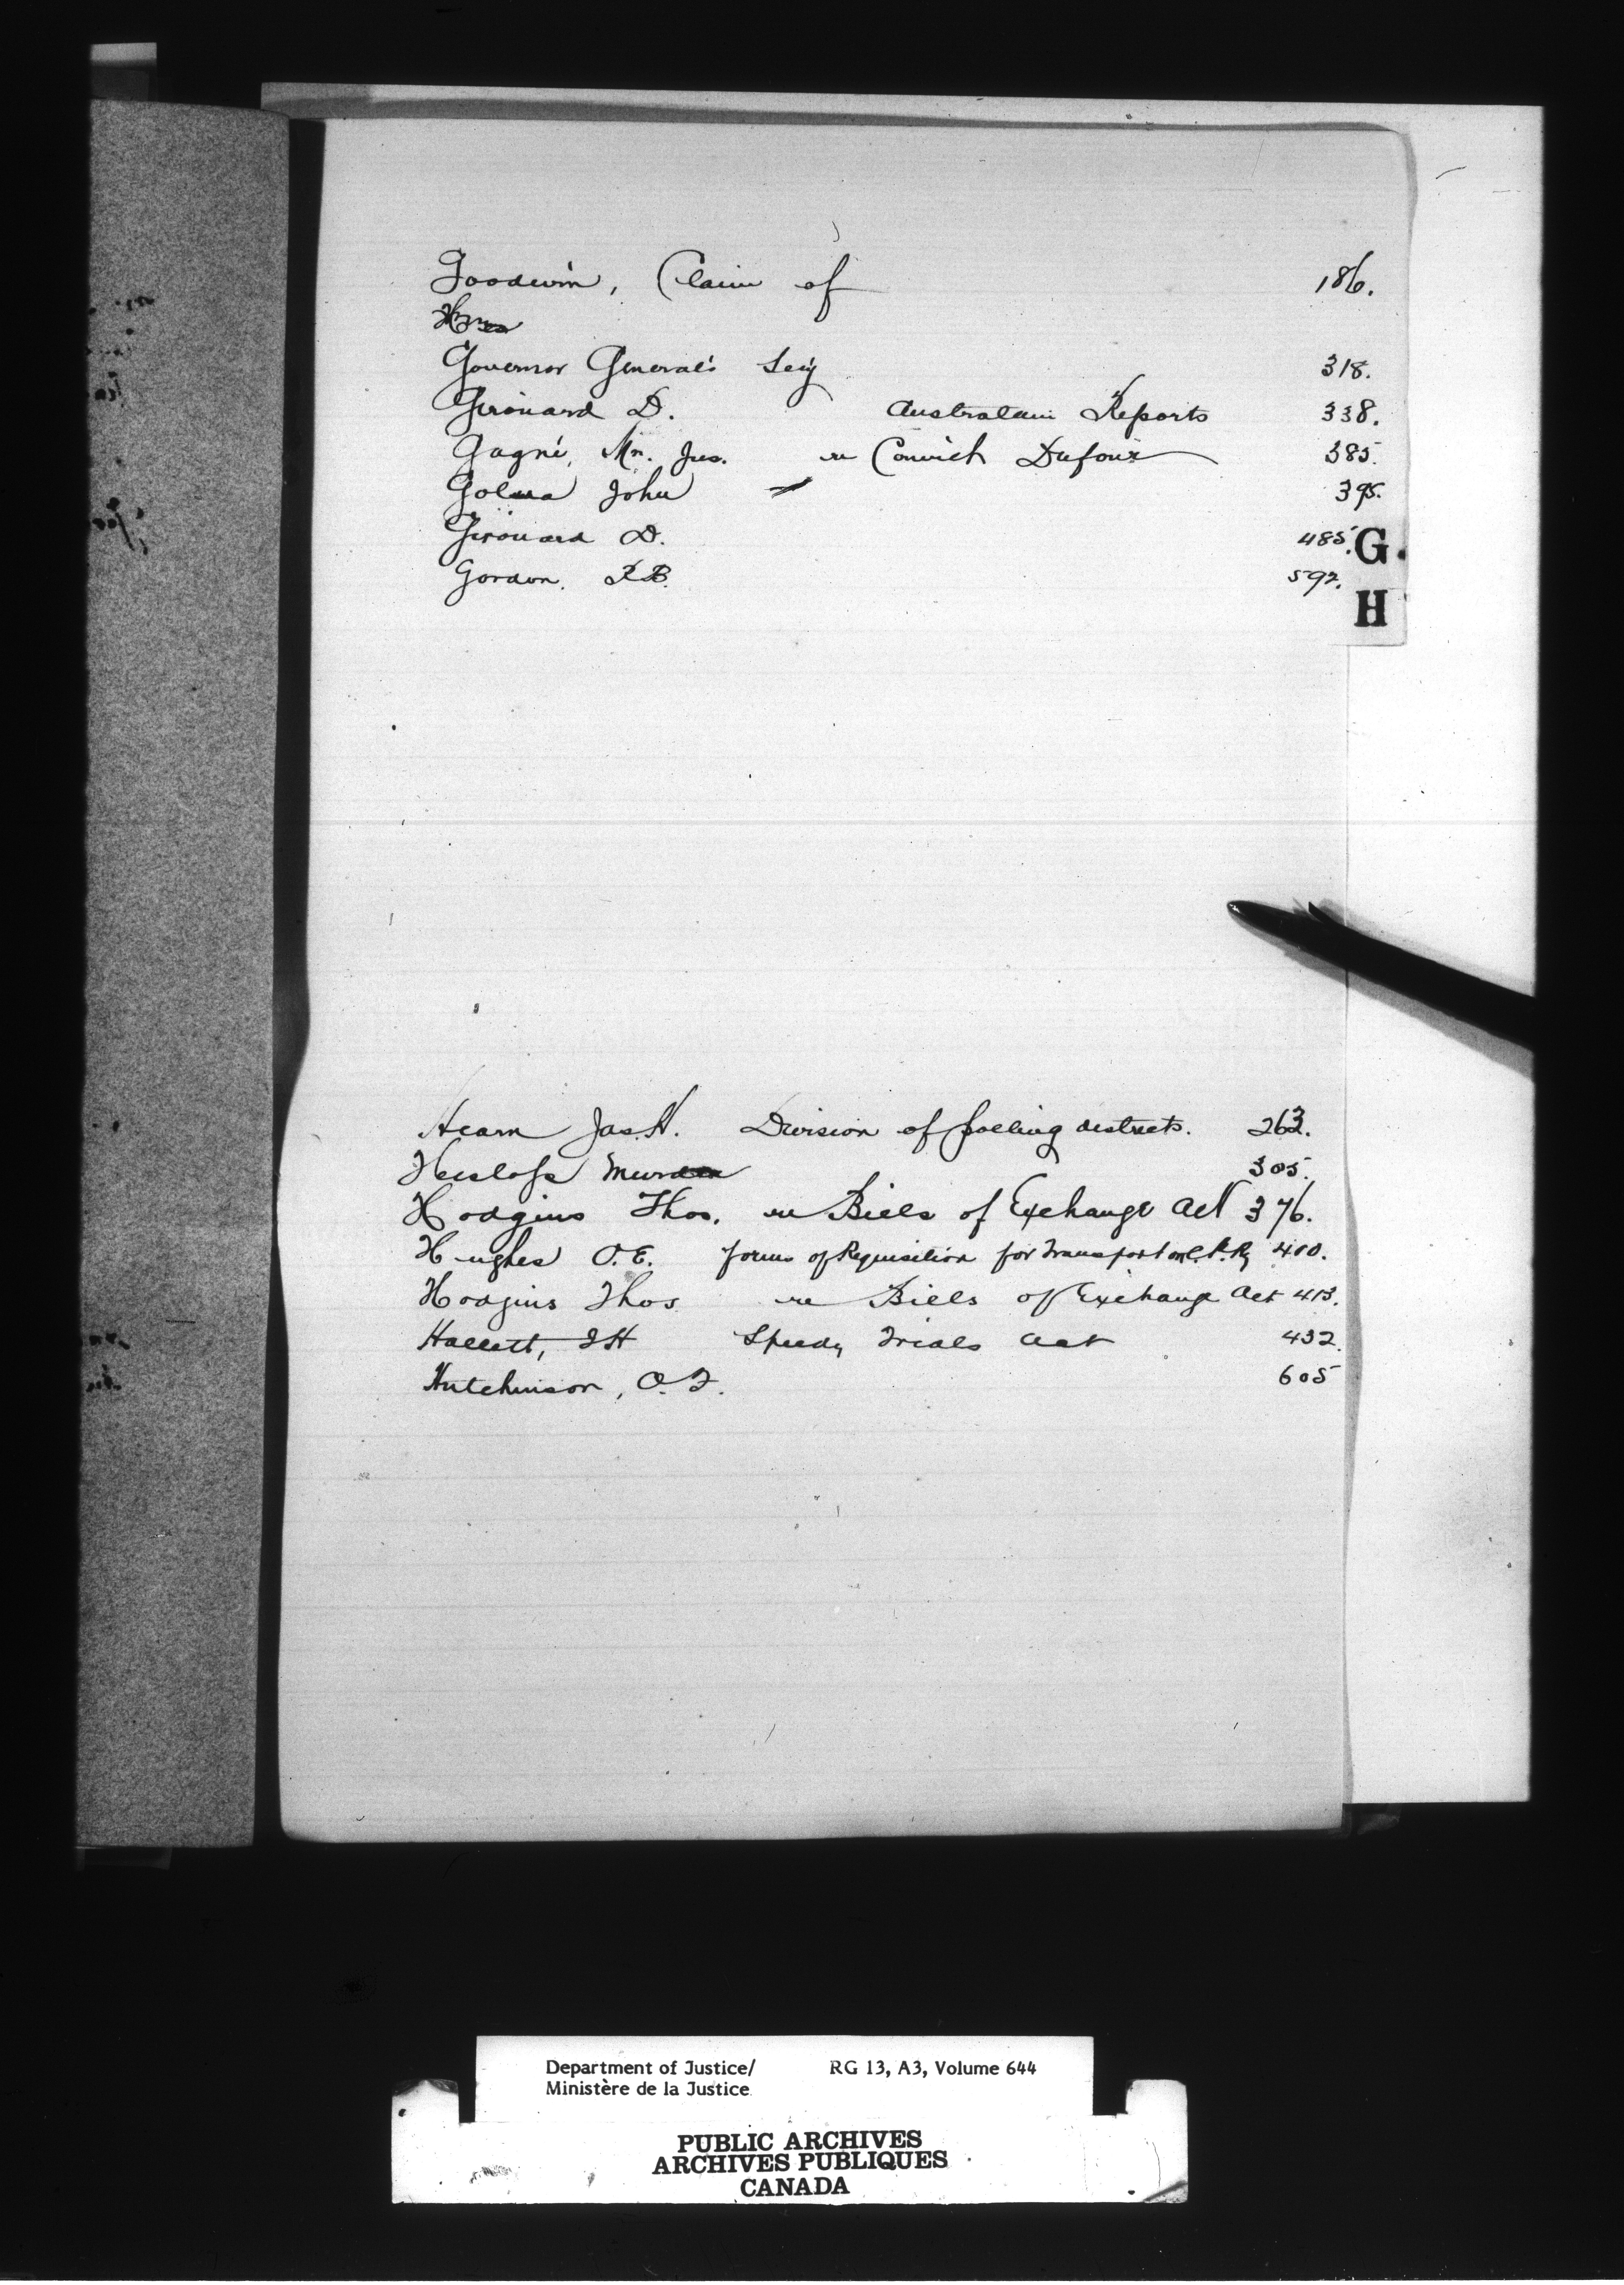 Goodwin, Claim of 186.
Governor General's Sec'y 318.
Girouard D. Australain Reports 338.
Gagné, Mr. Jus. re Convict Dufour 385.
John 395.
Girouard D. 485.
G.
Gordon. R.B. 592.
H
Hearn Jas. H. Division of polling districts. 263.
Heslop Murder 305.
Hodgins Thos. re Bills of Exchange Act 376.
Hughes O.E. forms of Requisition for Transport on C.P.Ry 400.
Hodgins Thos re Bills of Exchange Act 413.
Hallett, I H Speedy Trials Act 432.
Hutchinson, O.F. 605
Department of Justice/ RG 13, A3, Volume 644
Ministère de la Justice
PUBLIC ARCHIVES
ARCHIVES PUBLIQUES
CANADA